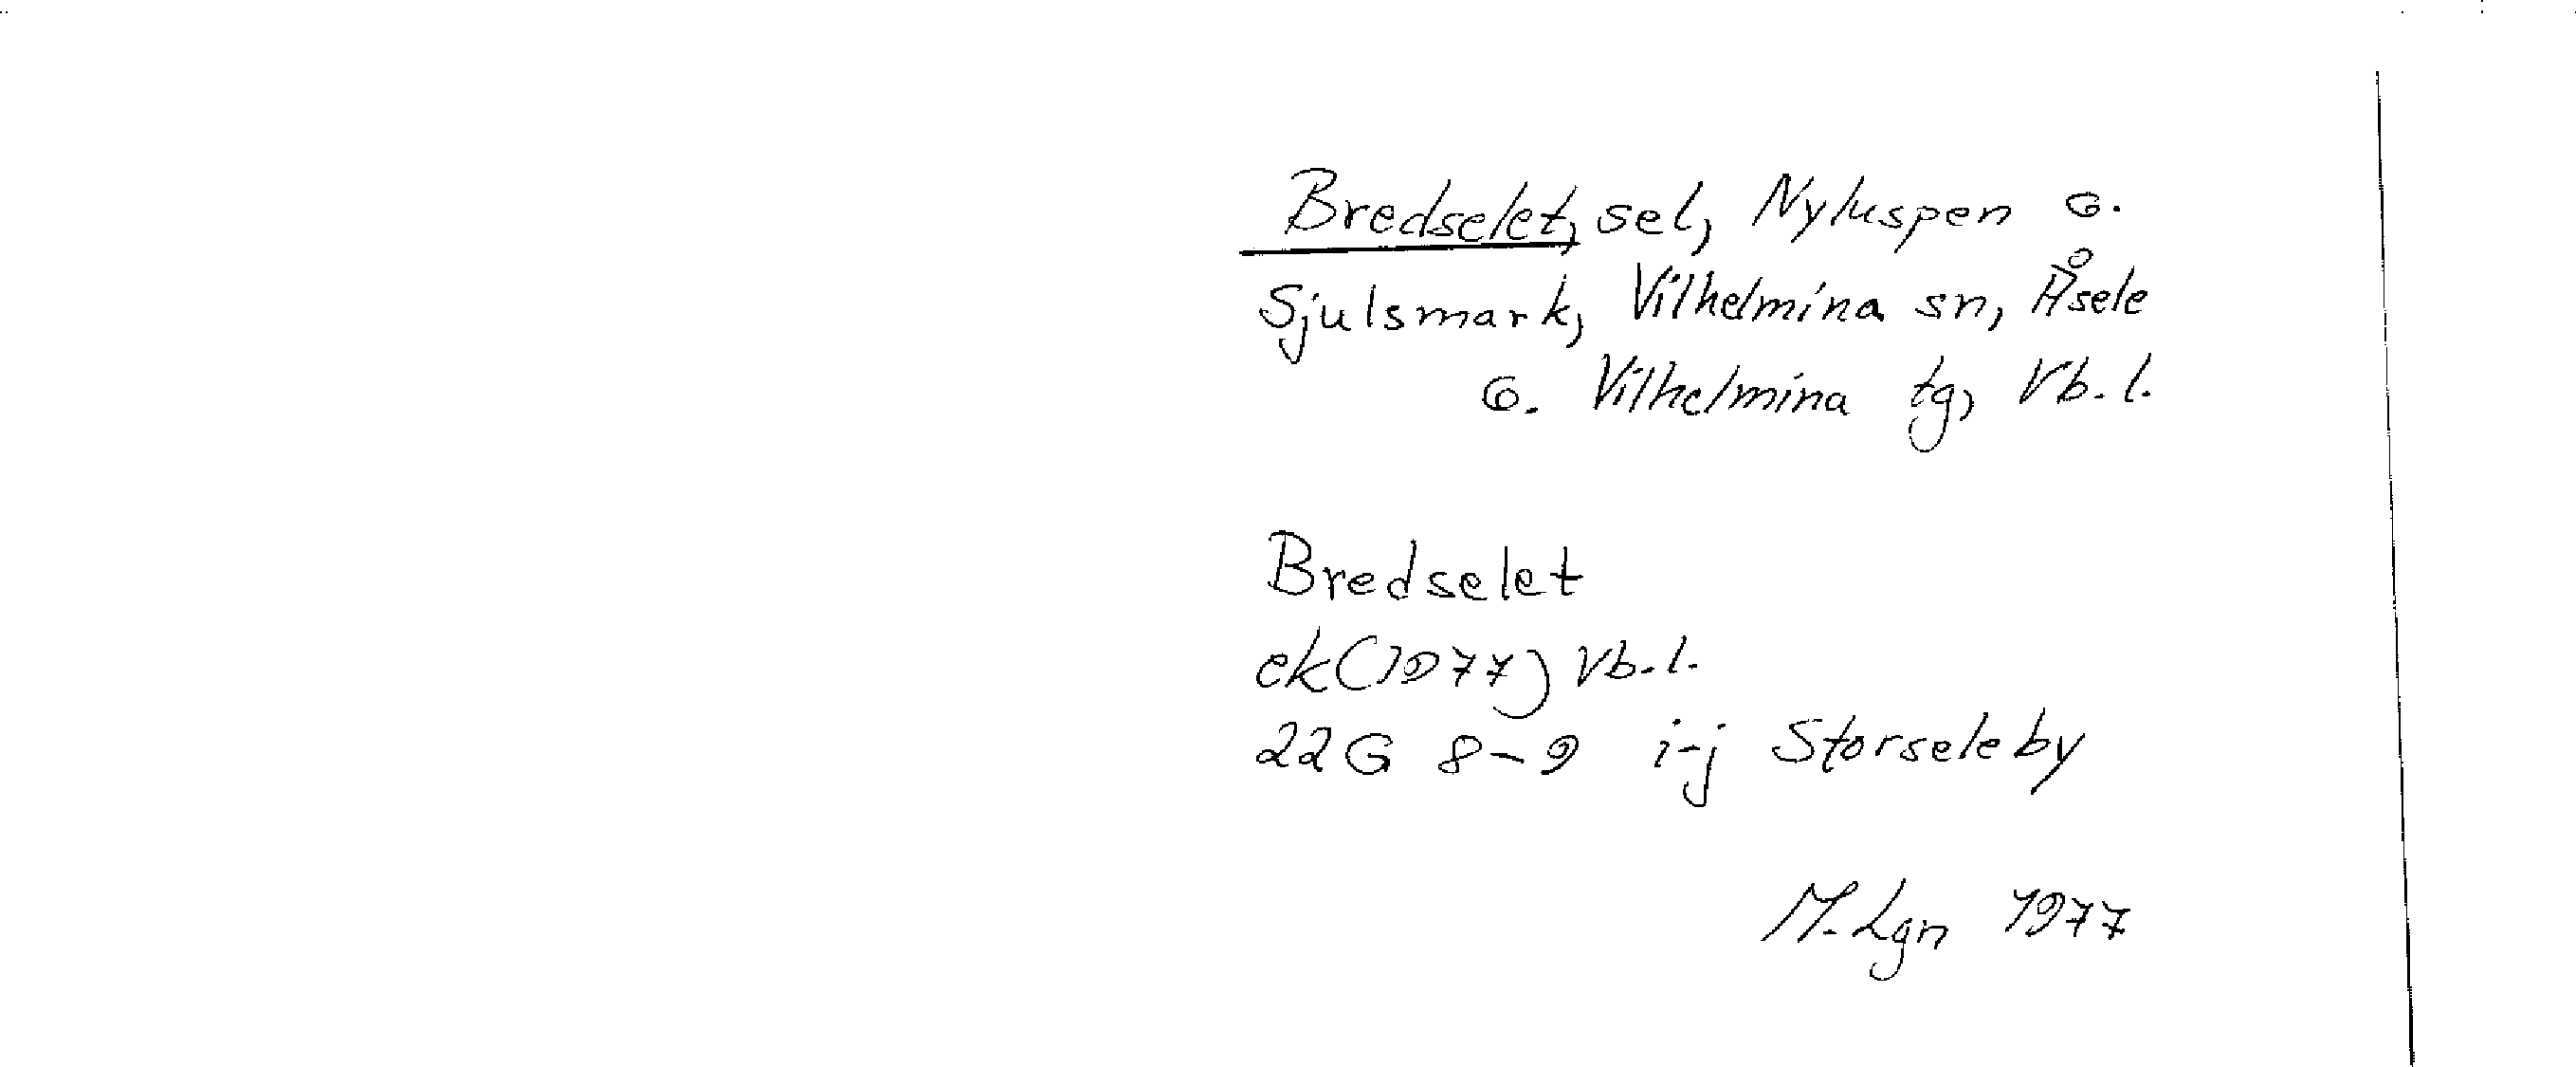 Bredselet, sel, Nyluspen o.
Sjulsmark, Vilhelmina sn, Åsele
o. Vilhelmina tg, Vb. l.
Bredselet
ek (1977) Vb. l.
22G 8-9 i-j Storseleby
M. Lgn 1977